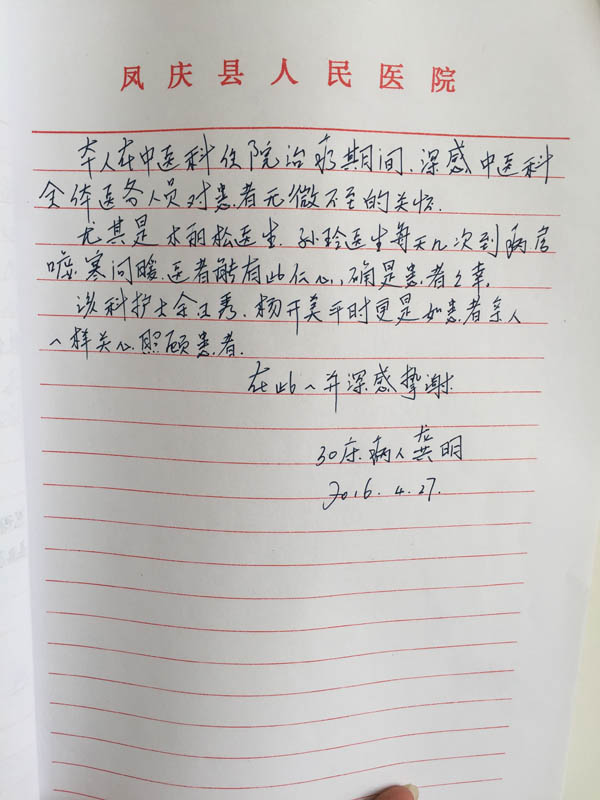 凤庆县人民医院
本人在中医科住院治疗期间,深感中医科
全体医务人员对患者无微不至的关怀.
尤其是木丽松医生.孙玲医生每天几次到病房
嘘寒问暖.医者能有此仁心,确是患者之幸.
该科护士余卫秀.杨开美平时更是如患者亲人
一样关心照顾患者.
在此一并深感挚谢.
30床病人龚明
2016.4.27.